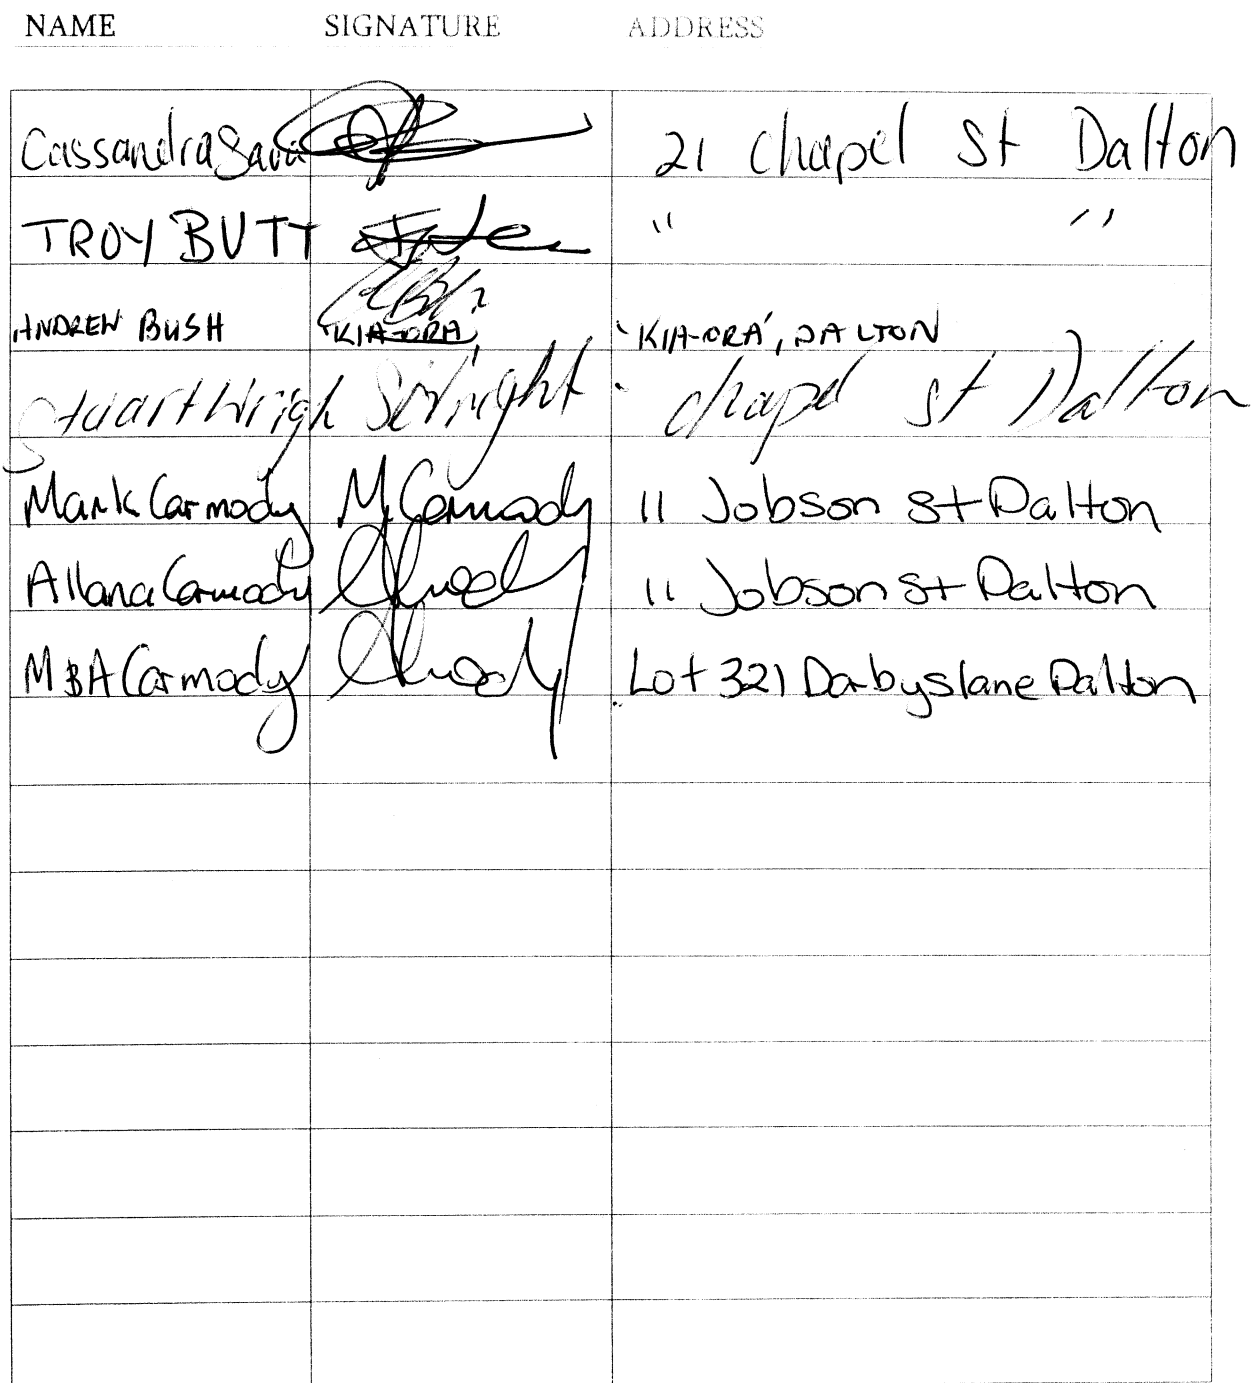 NAME SIGNATURE ADDRESS
Cassandra 21 Chapel St Dalton
TROY BUTT " "
ANDREW BUSH 'KIA-ORA' 'KIA-ORA', DALTON
Stuart Wrigh SWright chapel st Dalton
Mark Carmody M Carmody 11 Jobson St Dalton
Allana Carmody 11 Jobson St Dalton
M & A Carmody Lot 321 Darbys lane Dalton